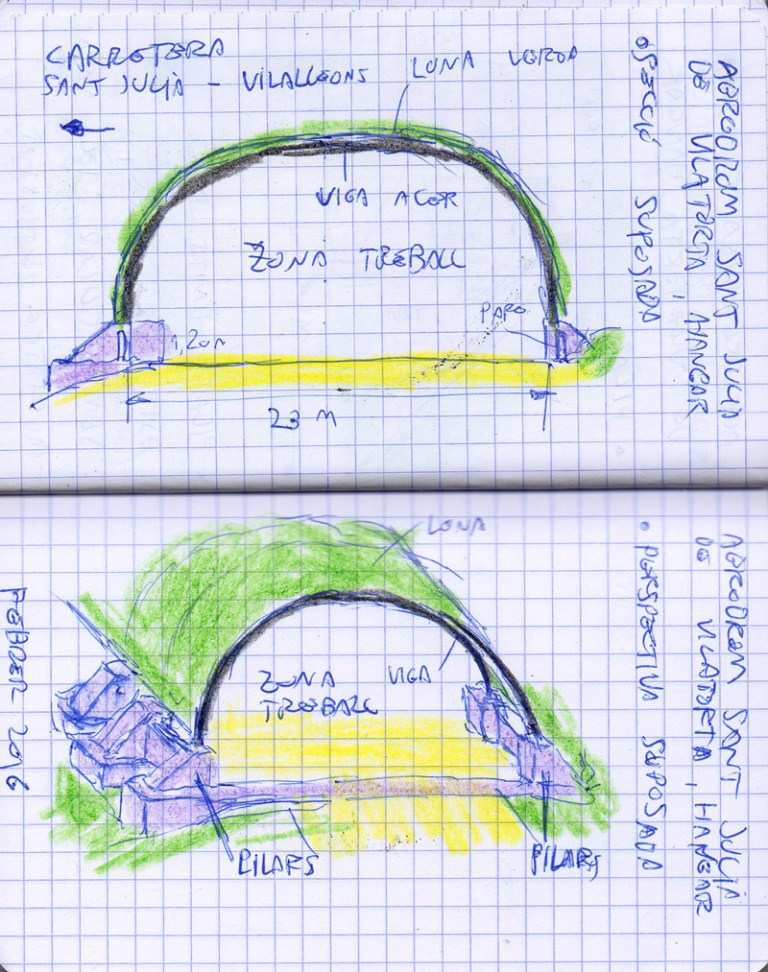 CARRETERA
SANT JULIÀ - VILALLEONS
LONA VERDA
VIGA ACER
ZONA TREBALL
1,20m
23 M
AERODROM SANT JULIÀ
DE VILATORTA, HANGAR
• SECCIÓ SUPOSADA
LONA
VIGA
ZONA
TREBALL
PILARS
PILARS
AERODROM SANT JULIÀ
DE VILATORTA, HANGAR
• PERSPECTIVA SUPOSADA
FEBRER 2016